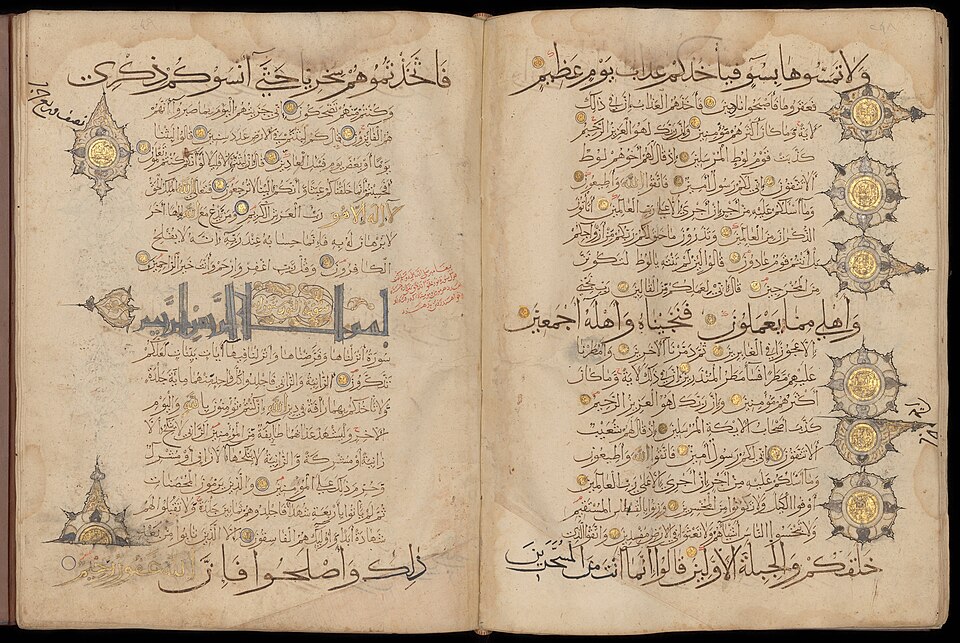 ولا تمسوها بسوء فيأخذكم عذاب يوم عظيم
فعقروها فأصبحوا نادمين فأخذهم العذاب إن في ذلك
لآية وما كان أكثرهم مؤمنين وإن ربك لهو العزيز الرحيم
كذبت قوم لوط المرسلين إذ قال لهم أخوهم لوط
ألا تتقون إني لكم رسول أمين فاتقوا الله وأطيعون
وما أسألكم عليه من أجر إن أجري إلا على رب العالمين أتأتون
الذكران من العالمين وتذرون ما خلق لكم ربكم من أزواجكم
بل أنتم قوم عادون قالوا لئن لم تنته يا لوط لتكونن
من المخرجين قال إني لعملكم من القالين رب نجني
وأهلي مما يعملون فنجيناه وأهله أجمعين
إلا عجوزا في الغابرين ثم دمرنا الآخرين وأمطرنا
عليهم مطرا فساء مطر المنذرين إن في ذلك لآية وما كان
أكثرهم مؤمنين وإن ربك لهو العزيز الرحيم
كذب أصحاب الأيكة المرسلين إذ قال لهم شعيب
ألا تتقون إني لكم رسول أمين فاتقوا الله وأطيعون
وما أسألكم عليه من أجر إن أجري إلا على رب العالمين
أوفوا الكيل ولا تكونوا من المخسرين وزنوا بالقسطاس المستقيم
ولا تبخسوا الناس أشياءهم ولا تعثوا في الأرض مفسدين واتقوا الذي
خلقكم والجبلة الأولين قالوا إنما أنت من المسحرين
فاتخذتموهم سخريا حتى أنسوكم ذكري
وكنتم منهم تضحكون إني جزيتهم اليوم بما صبروا أنهم
هم الفائزون قال كم لبثتم في الأرض عدد سنين قالوا لبثنا
يوما أو بعض يوم فسئل العادين قال إن لبثتم إلا قليلا لو أنكم كنتم تعلمون
أفحسبتم أنما خلقناكم عبثا وأنكم إلينا لا ترجعون فتعالى الله الملك الحق
لا إله إلا هو رب العرش الكريم ومن يدع مع الله إلها آخر
لا برهان له به فإنما حسابه عند ربه إنه لا يفلح
الكافرون وقل رب اغفر وارحم وأنت خير الراحمين
بسم الله الرحمن الرحيم
سورة أنزلناها وفرضناها وأنزلنا فيها آيات بينات لعلكم
تذكرون الزانية والزاني فاجلدوا كل واحد منهما مائة جلدة
ولا تأخذكم بهما رأفة في دين الله إن كنتم تؤمنون بالله واليوم
الآخر وليشهد عذابهما طائفة من المؤمنين الزاني لا ينكح إلا
زانية أو مشركة والزانية لا ينكحها إلا زان أو مشرك
وحرم ذلك على المؤمنين والذين يرمون المحصنات
ثم لم يأتوا بأربعة شهداء فاجلدوهم ثمانين جلدة ولا تقبلوا لهم
شهادة أبدا وأولئك هم الفاسقون إلا الذين تابوا من بعد
ذلك وأصلحوا فإن
الله غفور رحيم